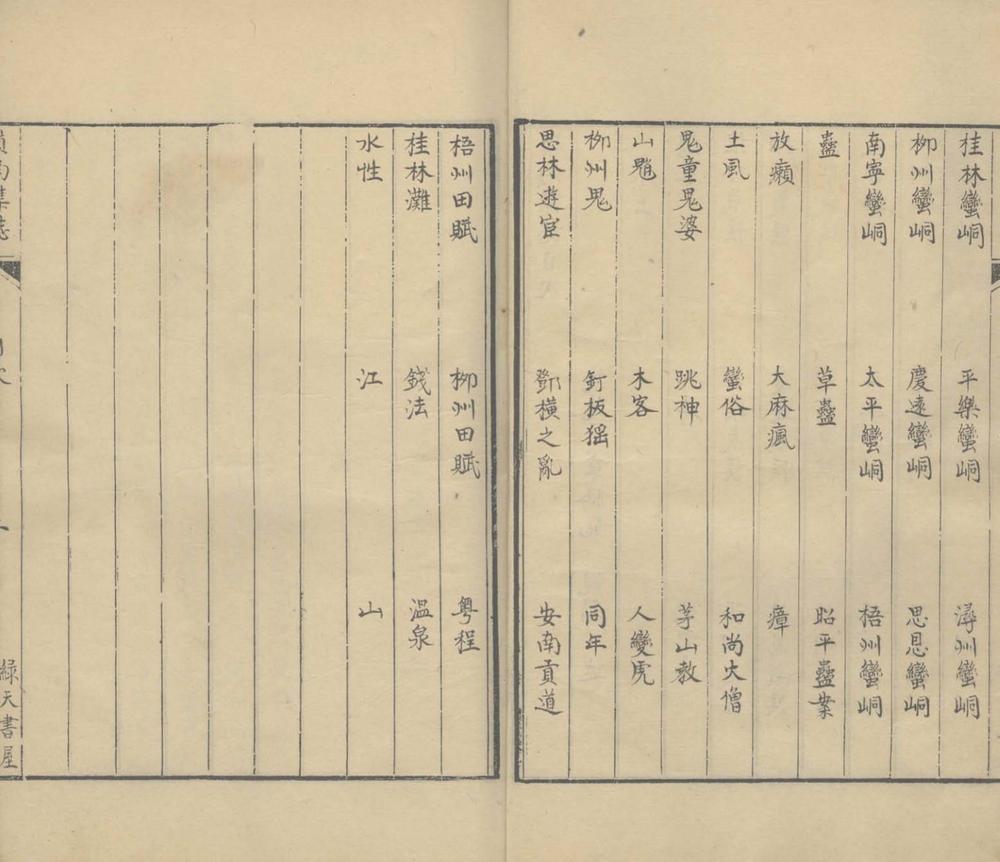 桂林蠻峒 平樂蠻峒 潯州蠻峒
柳州蠻峒 慶遠蠻峒 思恩蠻峒
南寧蠻峒 太平蠻峒 梧州蠻峒
蠱 草蠱 昭平蠱案
放癩 大麻瘋 瘴
土風 蠻俗 和尚火僧
鬼童鬼婆 跳神 茅山教
山魈 木客 人變虎
柳州鬼 釘板猺 同年
思林遊宦 鄧橫之亂 安南貢道
梧州田賦 柳州田賦 粵程
桂林灘 錢法 溫泉
水性 江 山
嶺南集誌
綠天書屋